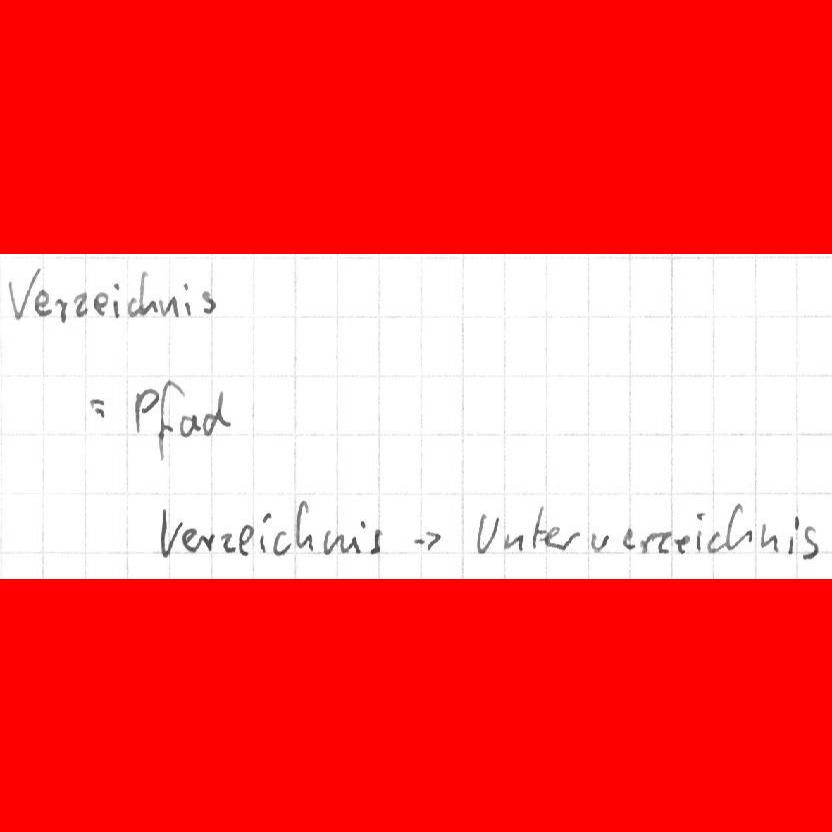 Verzeichnis
= Pfad
Verzeichnis -> Unterverzeichnis